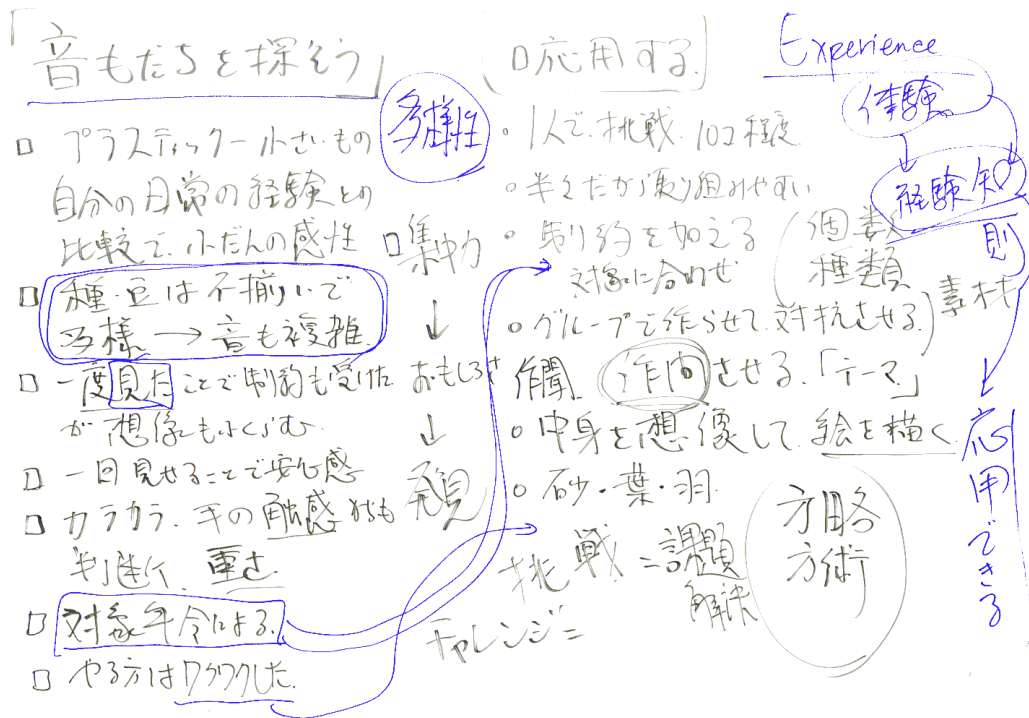 「音もだちを探そう」
多様性
□ プラスティックー小さいもの
自分の日常の経験との
比較で、ふだんの感性
□ 種・豆は不揃いで
多様 → 音も複雑
□ 一度見たことで制約も受けた
が想像もふくらむ
□ 一回見せることで安心感
□ カラカラ、手の触感
判断 重さ
□ 対象年令による。
□ やる方はワクワクした。
□集中力
↓
おもしろさ
↓
発見
□応用する
・1人で、挑戦 10コ程度
・半々だから取り組みやすい
・制約を加える
対象に合わせ
(個数
種類
素材)
○グループで作らせて、対抗させる
作問させる、「テーマ」
○中身を想像して、絵を描く
○砂・葉・羽
挑戦=課題
解決
チャレンジ=
方略
方術
Experience
体験
経験知
則
応用できる